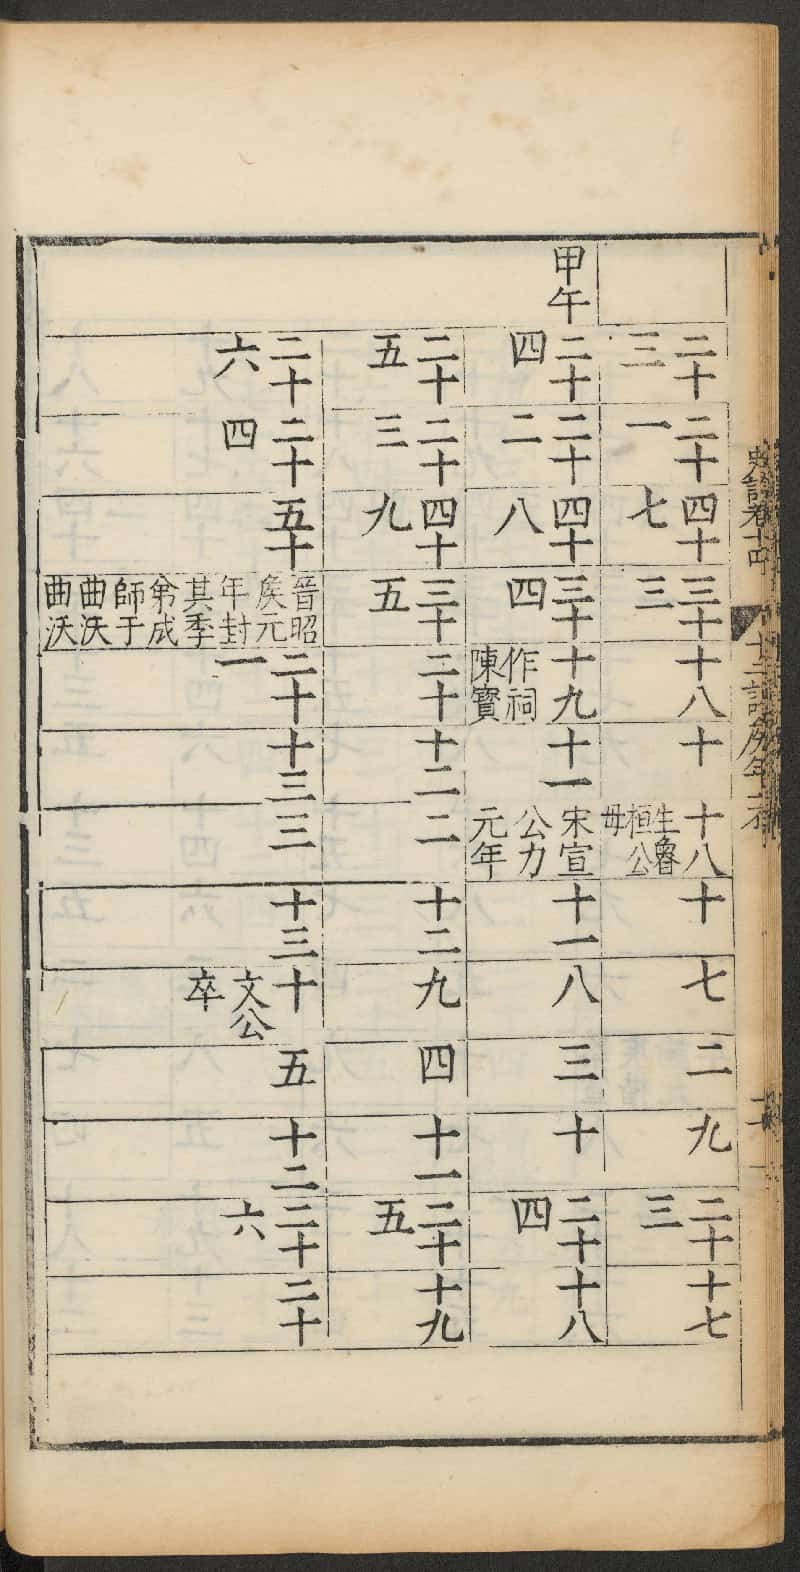 史記卷十四 十二諸侯年表
二十三
二十一
四十七
三十三
十八
十
十八 生魯桓公母
十
七
二
九
二十三
十七
甲午
二十四
二十二
四十八
三十四
十九 作祠陳寶
十一
宋宣公力元年
十一
八
三
十
二十四
十八
二十五
二十三
四十九
三十五
二十
十二
二
十二
九
四
十一
二十五
十九
二十六
二十四
五十
晉昭矦元年封其季弟成師于曲沃曲沃
二十一
十三
三
十三
十 文公卒
五
十二
二十六
二十